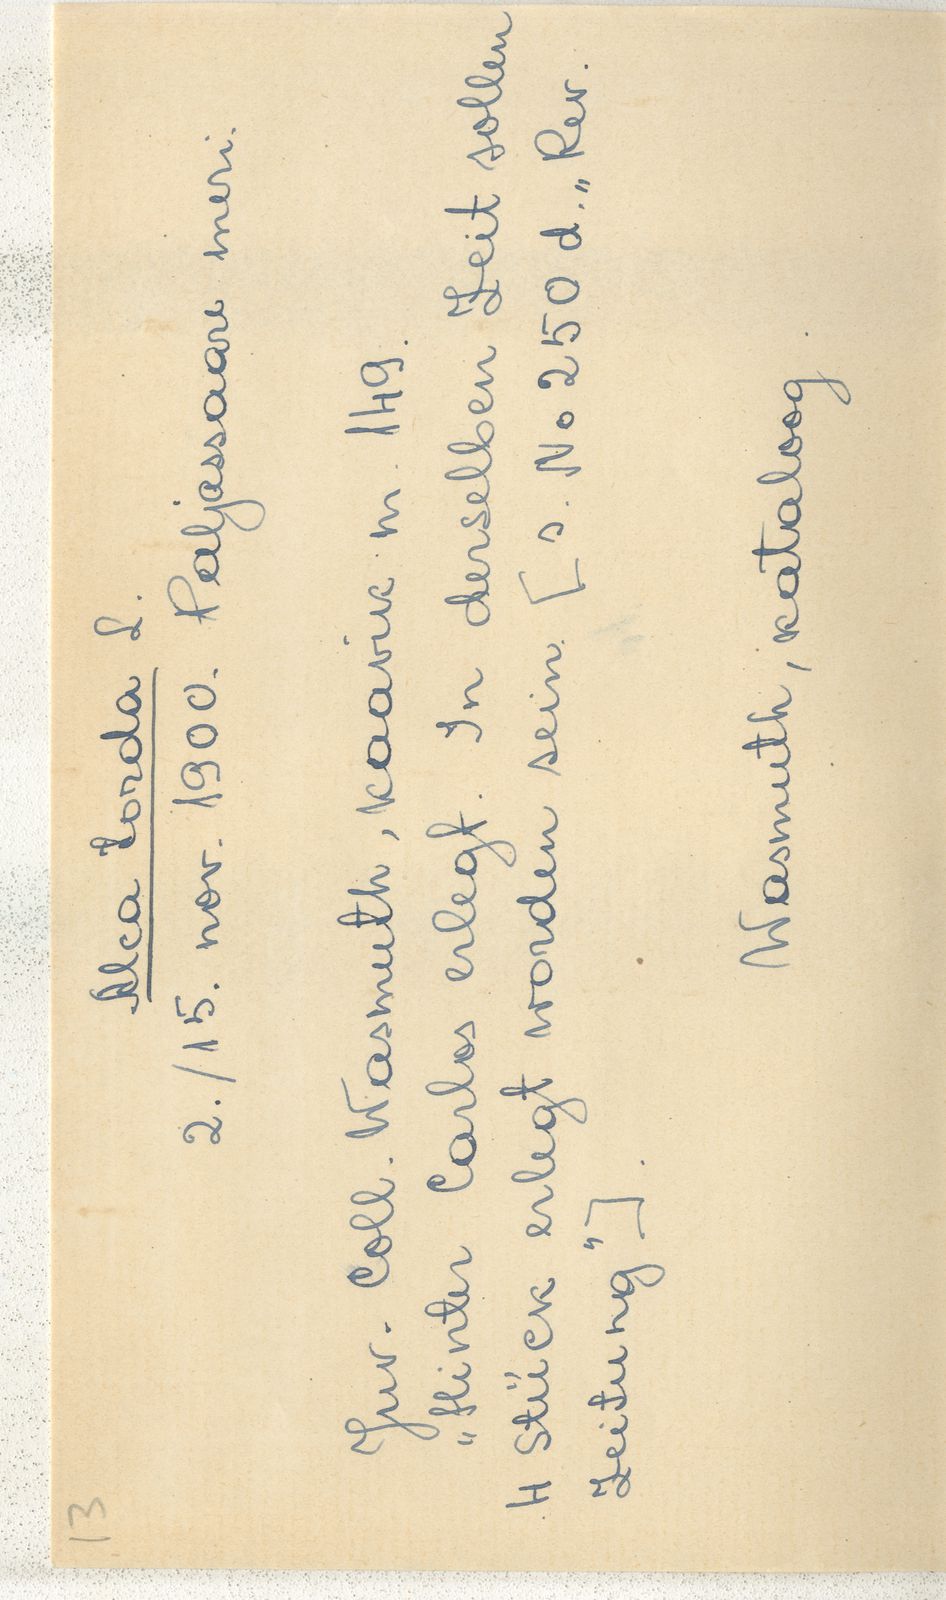 13
Alca torda L.
2./15. nov. 1900. Paljassaare meri.
Juv. Coll. Wasmuth, kaavik n. 149.
"Hinter Carlos erlegt. In derselben Zeit sollen
4 Stück erlegt worden sein. [s. No 250 d. „Rev.
Zeitung"].
Wasmuth, kataloog